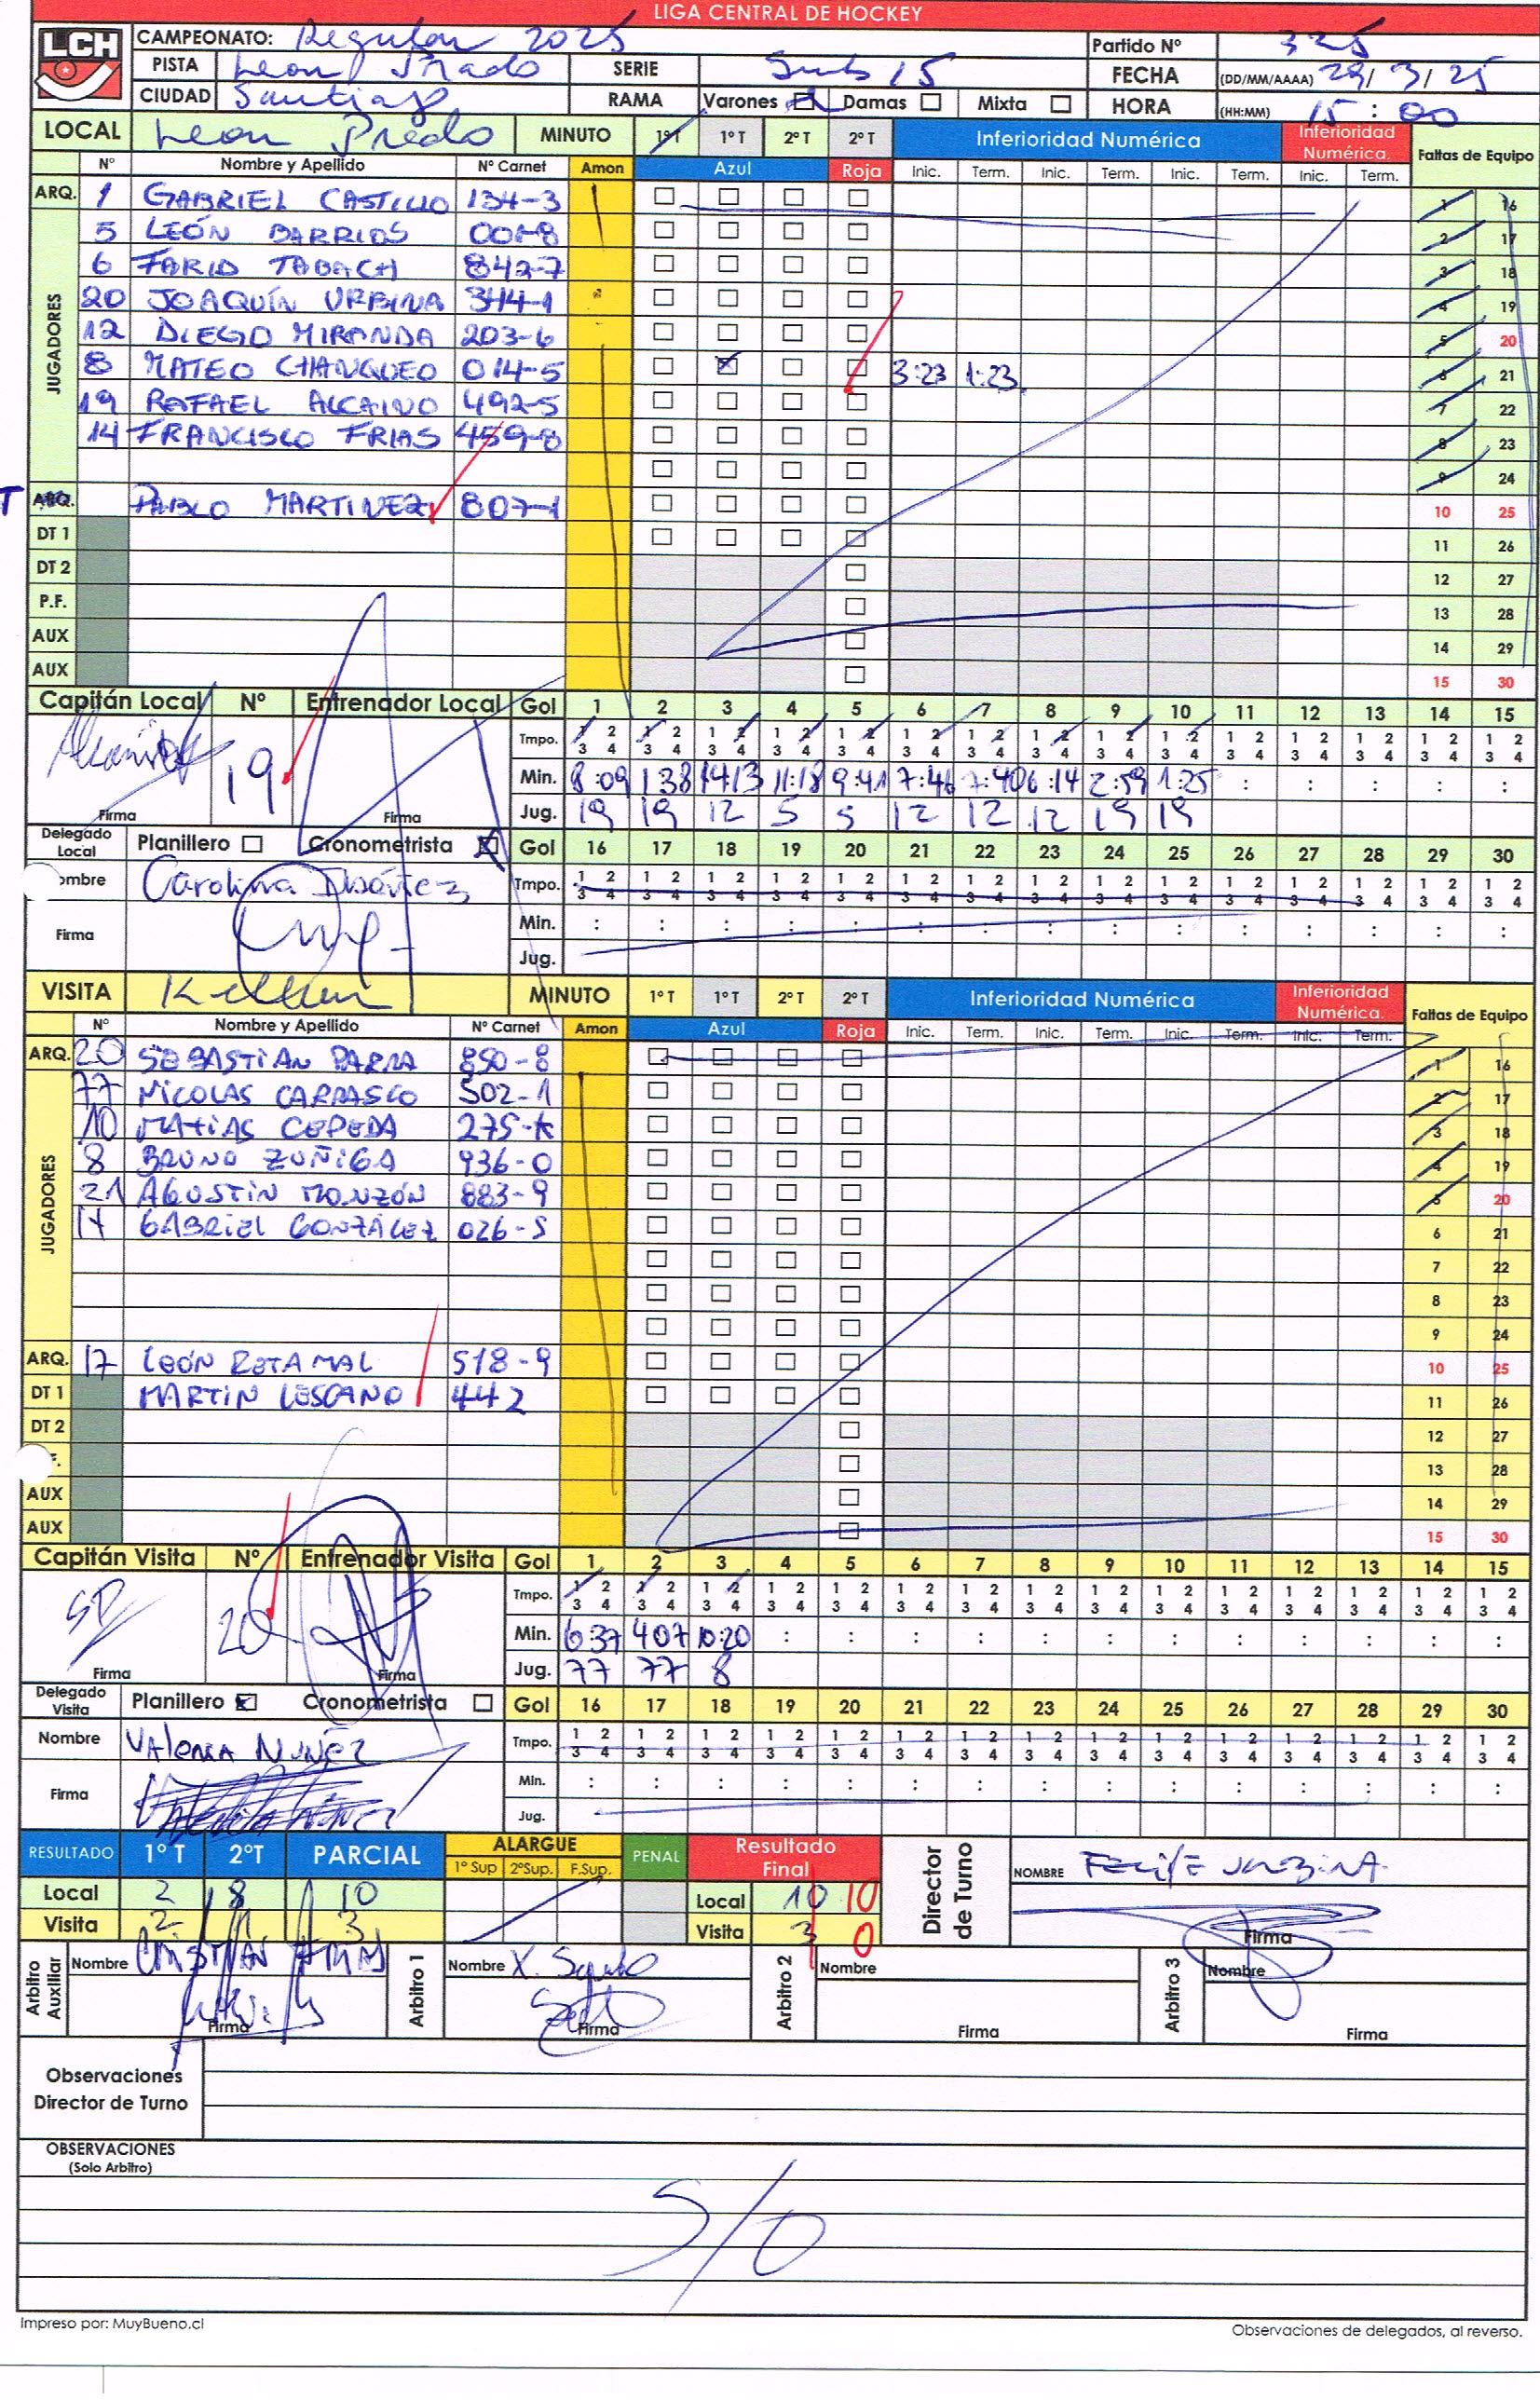 LIGA CENTRAL DE HOCKEY
LCH
CAMPEONATO: Regular 2025
Partido Nº 325
PISTA Leon Prado SERIE Sub 15 FECHA (DD/MM/AAAA) 29/3/25
CIUDAD Santiago RAMA Varones Damas Mixta HORA (HH:MM) 15:00
LOCAL Leon Prado MINUTO 1ºT 1ºT 2ºT 2ºT Inferioridad Numérica Inferioridad Numérica. Faltas de Equipo
Nº Nombre y Apellido Nº Carnet Amon Azul Roja Inic. Term. Inic. Term. Inic. Term. Inic. Term.
ARQ. 1 GABRIEL CASTILLO 134-3 1 16
JUGADORES
5 LEÓN BARRIOS 001-8 2 17
6 FARID TABACH 842-7 3 18
20 JOAQUÍN URBINA 344-1 4 19
12 DIEGO MIRANDA 203-6 5 20
8 MATEO CHANQUEO 014-5 3:23 1:23 6 21
19 RAFAEL ALCAINO 492-5 7 22
14 FRANCISCO FRIAS 459-8 8 23
9 24
ARQ. PABLO MARTINEZ 807-1 10 25
DT 1 11 26
DT 2 12 27
P.F. 13 28
AUX 14 29
AUX 15 30
Capitán Local Nº Entrenador Local Gol 1 2 3 4 5 6 7 8 9 10 11 12 13 14 15
Tmpo. 1 2 3 4 1 2 3 4 1 2 3 4 1 2 3 4 1 2 3 4 1 2 3 4 1 2 3 4 1 2 3 4 1 2 3 4 1 2 3 4 1 2 3 4 1 2 3 4 1 2 3 4 1 2 3 4 1 2 3 4
19 Min. 8:09 1:38 14:13 11:18 9:41 7:46 7:40 6:14 2:59 1:25 : : : : :
Firma Firma Jug. 19 19 12 5 5 12 12 12 19 19
Delegado Local Planillero Cronometrista Gol 16 17 18 19 20 21 22 23 24 25 26 27 28 29 30
ombre Carolina Ibáñez Tmpo. 1 2 3 4 1 2 3 4 1 2 3 4 1 2 3 4 1 2 3 4 1 2 3 4 1 2 3 4 1 2 3 4 1 2 3 4 1 2 3 4 1 2 3 4 1 2 3 4 1 2 3 4 1 2 3 4 1 2 3 4
Firma Min. : : : : : : : : : : : : : : :
Jug.
VISITA MINUTO 1ºT 1ºT 2ºT 2ºT Inferioridad Numérica Inferioridad Numérica. Faltas de Equipo
Nº Nombre y Apellido Nº Carnet Amon Azul Roja Inic. Term. Inic. Term. Inic. Term. Inic. Term.
ARQ. 20 SEBASTIAN PARRA 850-8 1 16
JUGADORES
77 NICOLAS CARRASCO 502-1 2 17
10 MATIAS CEPEDA 275-K 3 18
8 BRUNO ZUÑIGA 936-0 4 19
21 AGUSTIN MONZÓN 883-9 5 20
14 GABRIEL GONZÁLEZ 026-5 6 21
7 22
8 23
9 24
ARQ. 17 LEÓN RETAMAL 518-9 10 25
DT 1 MARTIN LESCANO 442 11 26
DT 2 12 27
F. 13 28
AUX 14 29
AUX 15 30
Capitán Visita Nº Entrenador Visita Gol 1 2 3 4 5 6 7 8 9 10 11 12 13 14 15
Tmpo. 1 2 3 4 1 2 3 4 1 2 3 4 1 2 3 4 1 2 3 4 1 2 3 4 1 2 3 4 1 2 3 4 1 2 3 4 1 2 3 4 1 2 3 4 1 2 3 4 1 2 3 4 1 2 3 4 1 2 3 4
SP 20 Min. 6:37 4:07 10:20 : : : : : : : : : : : :
Firma Firma Jug. 77 77 8
Delegado Visita Planillero Cronometrista Gol 16 17 18 19 20 21 22 23 24 25 26 27 28 29 30
Nombre Valeria Nuñez Tmpo. 1 2 3 4 1 2 3 4 1 2 3 4 1 2 3 4 1 2 3 4 1 2 3 4 1 2 3 4 1 2 3 4 1 2 3 4 1 2 3 4 1 2 3 4 1 2 3 4 1 2 3 4 1 2 3 4 1 2 3 4
Firma Min. : : : : : : : : : : : : : : :
Jug.
RESULTADO 1ºT 2ºT PARCIAL ALARGUE 1º Sup 2ºSup. F.Sup. PENAL Resultado Final Director de Turno NOMBRE FELIPE URBINA
Local 2 8 10 Local 10 10
Visita 2 3 Visita 3 0 Firma
Arbitro Auxiliar Nombre CRISTIAN Arbitro 1 Nombre X. Arbitro 2 Nombre Arbitro 3 Nombre
Firma Firma Firma Firma
Observaciones
Director de Turno
OBSERVACIONES
(Solo Arbitro)
S/O
Impreso por: MuyBueno.cl
Observaciones de delegados, al reverso.